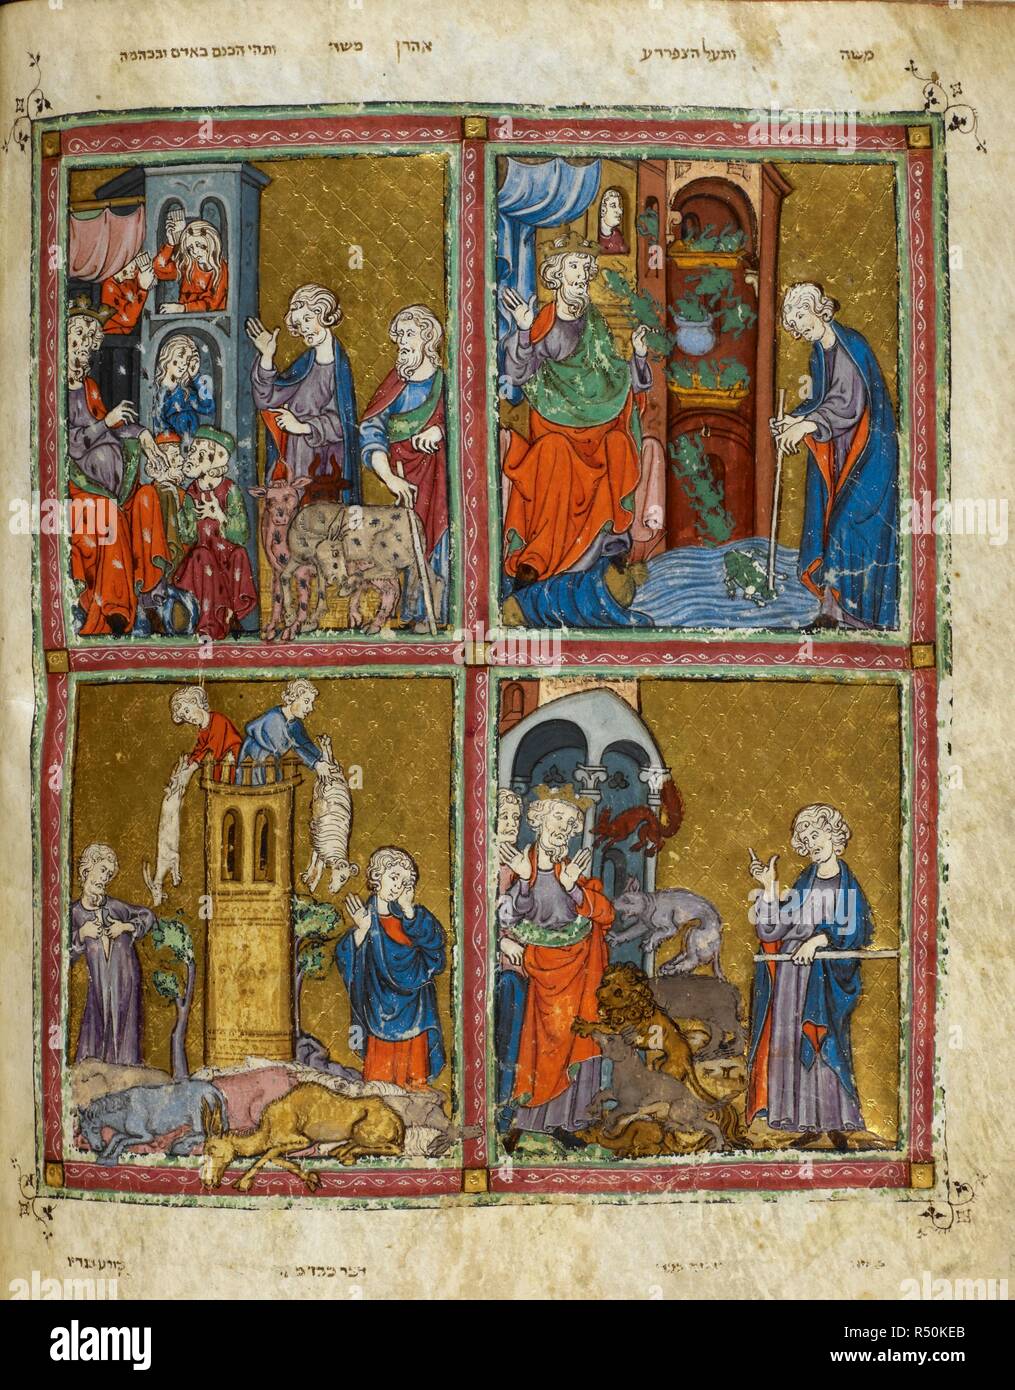 משה ותעל הצפרדע אהרן משה ותהי הכנם באדם ובבהמה
דבר כבד קורע בגדיו
a
alamy
a
a
a
alamy
Image ID: R50KEB
www.alamy.com